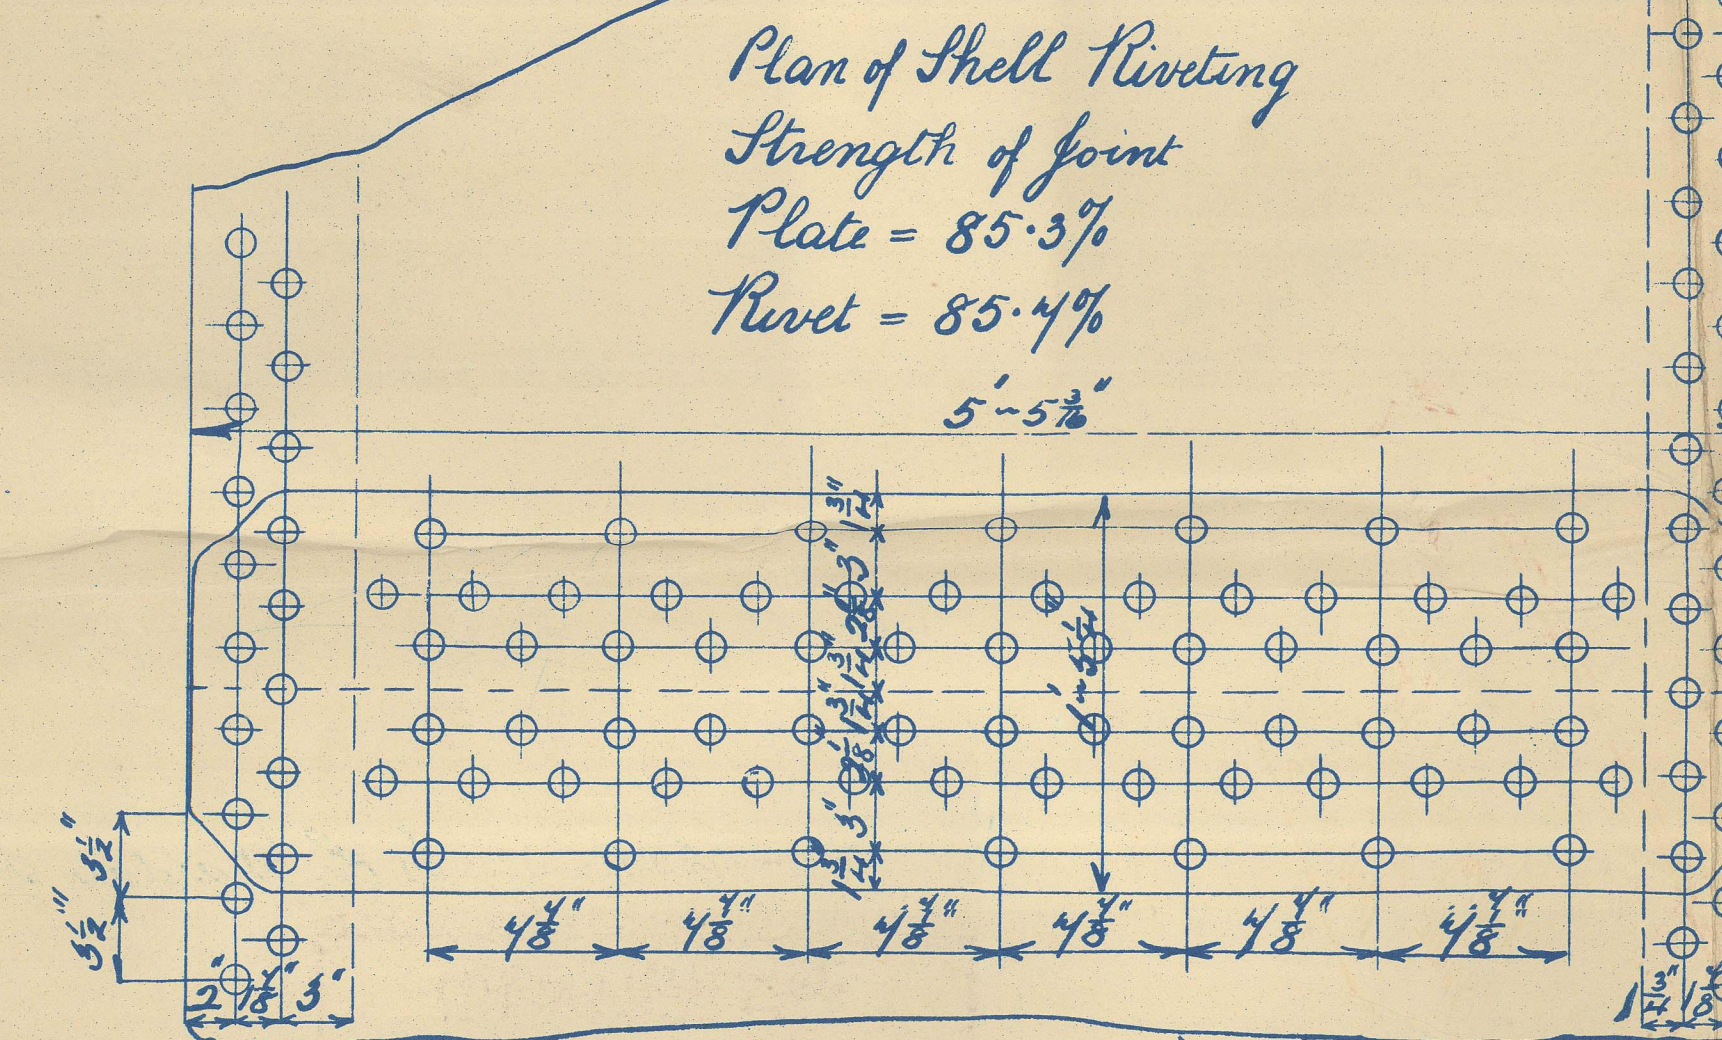 Plan of Shell Riveting
Strength of Joint
Plate = 85·3%
Rivet = 85·7%
5'~5 3/16"
1 3/4"
3"
2 1/8"
1 3/4
1 3/4"
2 1/8
3"
1 3/4
1'~5 1/4"
3 1/2"
3 1/2"
7 7/8"
7 7/8"
7 7/8"
7 7/8"
7 7/8"
7 7/8"
2"
1 7/8"
3"
1 3/4"
1 7/8